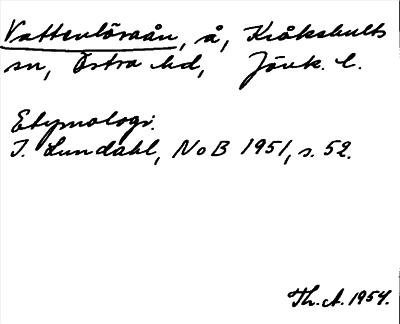 Vattenlösaån, å, Kråkshults
sn, Östra hd, Jönk. l.
Etymologi.
I. Lundahl, NoB 1951, s. 52.
Th. A. 1954.